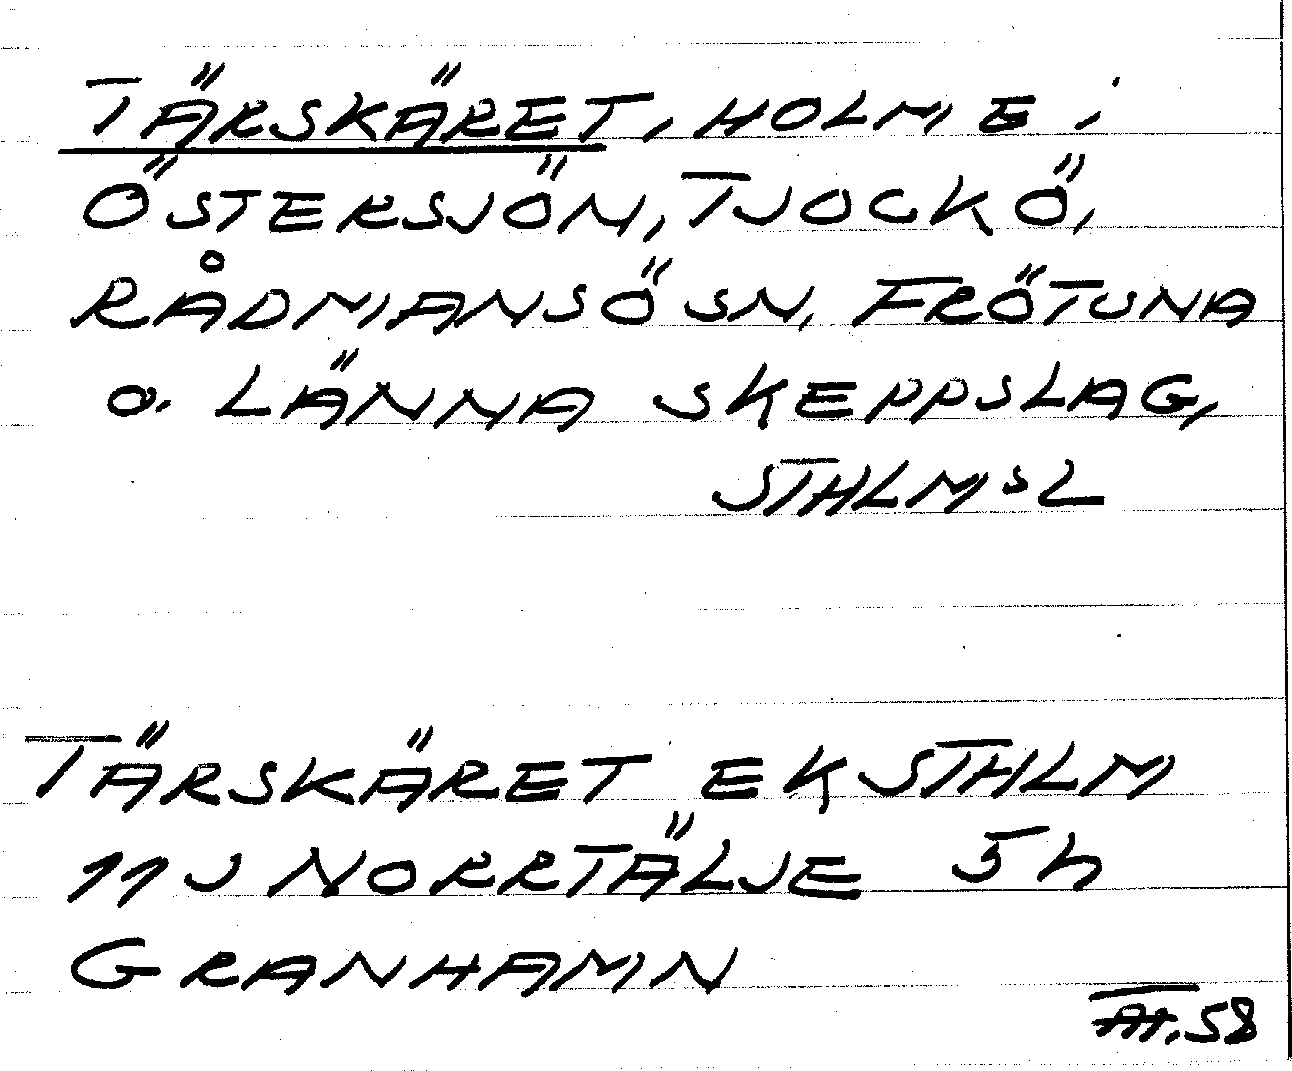 TÄRSKÄRET, HOLME i
ÖSTERSJÖN, TJOCKÖ,
RÅDMANSÖ SN, FRÖTUNA
o. LÄNNA SKEPPSLAG,
STHLMS L
TÄRSKÄRET EK STHLM
11J NORRTÄLJE 5h
GRANHAMN
58